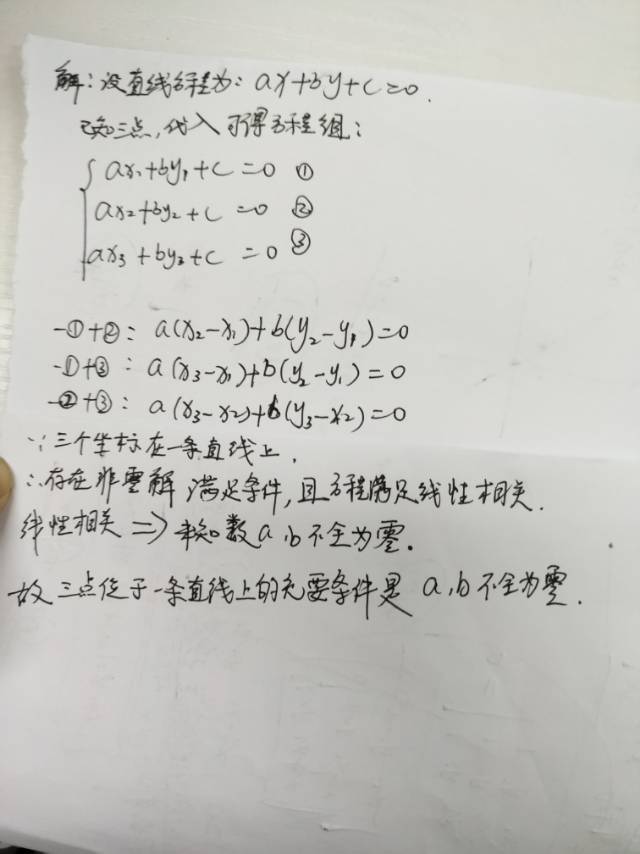 解：设直线方程为：ax+by+c=0.
已知三点，代入可得方程组：
ax₁+by₁+c=0 ①
ax₂+by₂+c=0 ②
ax₃+by₃+c=0 ③
-①+②：a(x₂-x₁)+b(y₂-y₁)=0
-①+③：a(x₃-x₁)+b(y₂-y₁)=0
-②+③：a(x₃-x₂)+b(y₃-x₂)=0
∵三个坐标在一条直线上.
∴存在非零解满足条件，且方程满足线性相关.
线性相关⇒未知数a,b不全为零.
故三点位于一条直线上的充要条件是a,b不全为零.